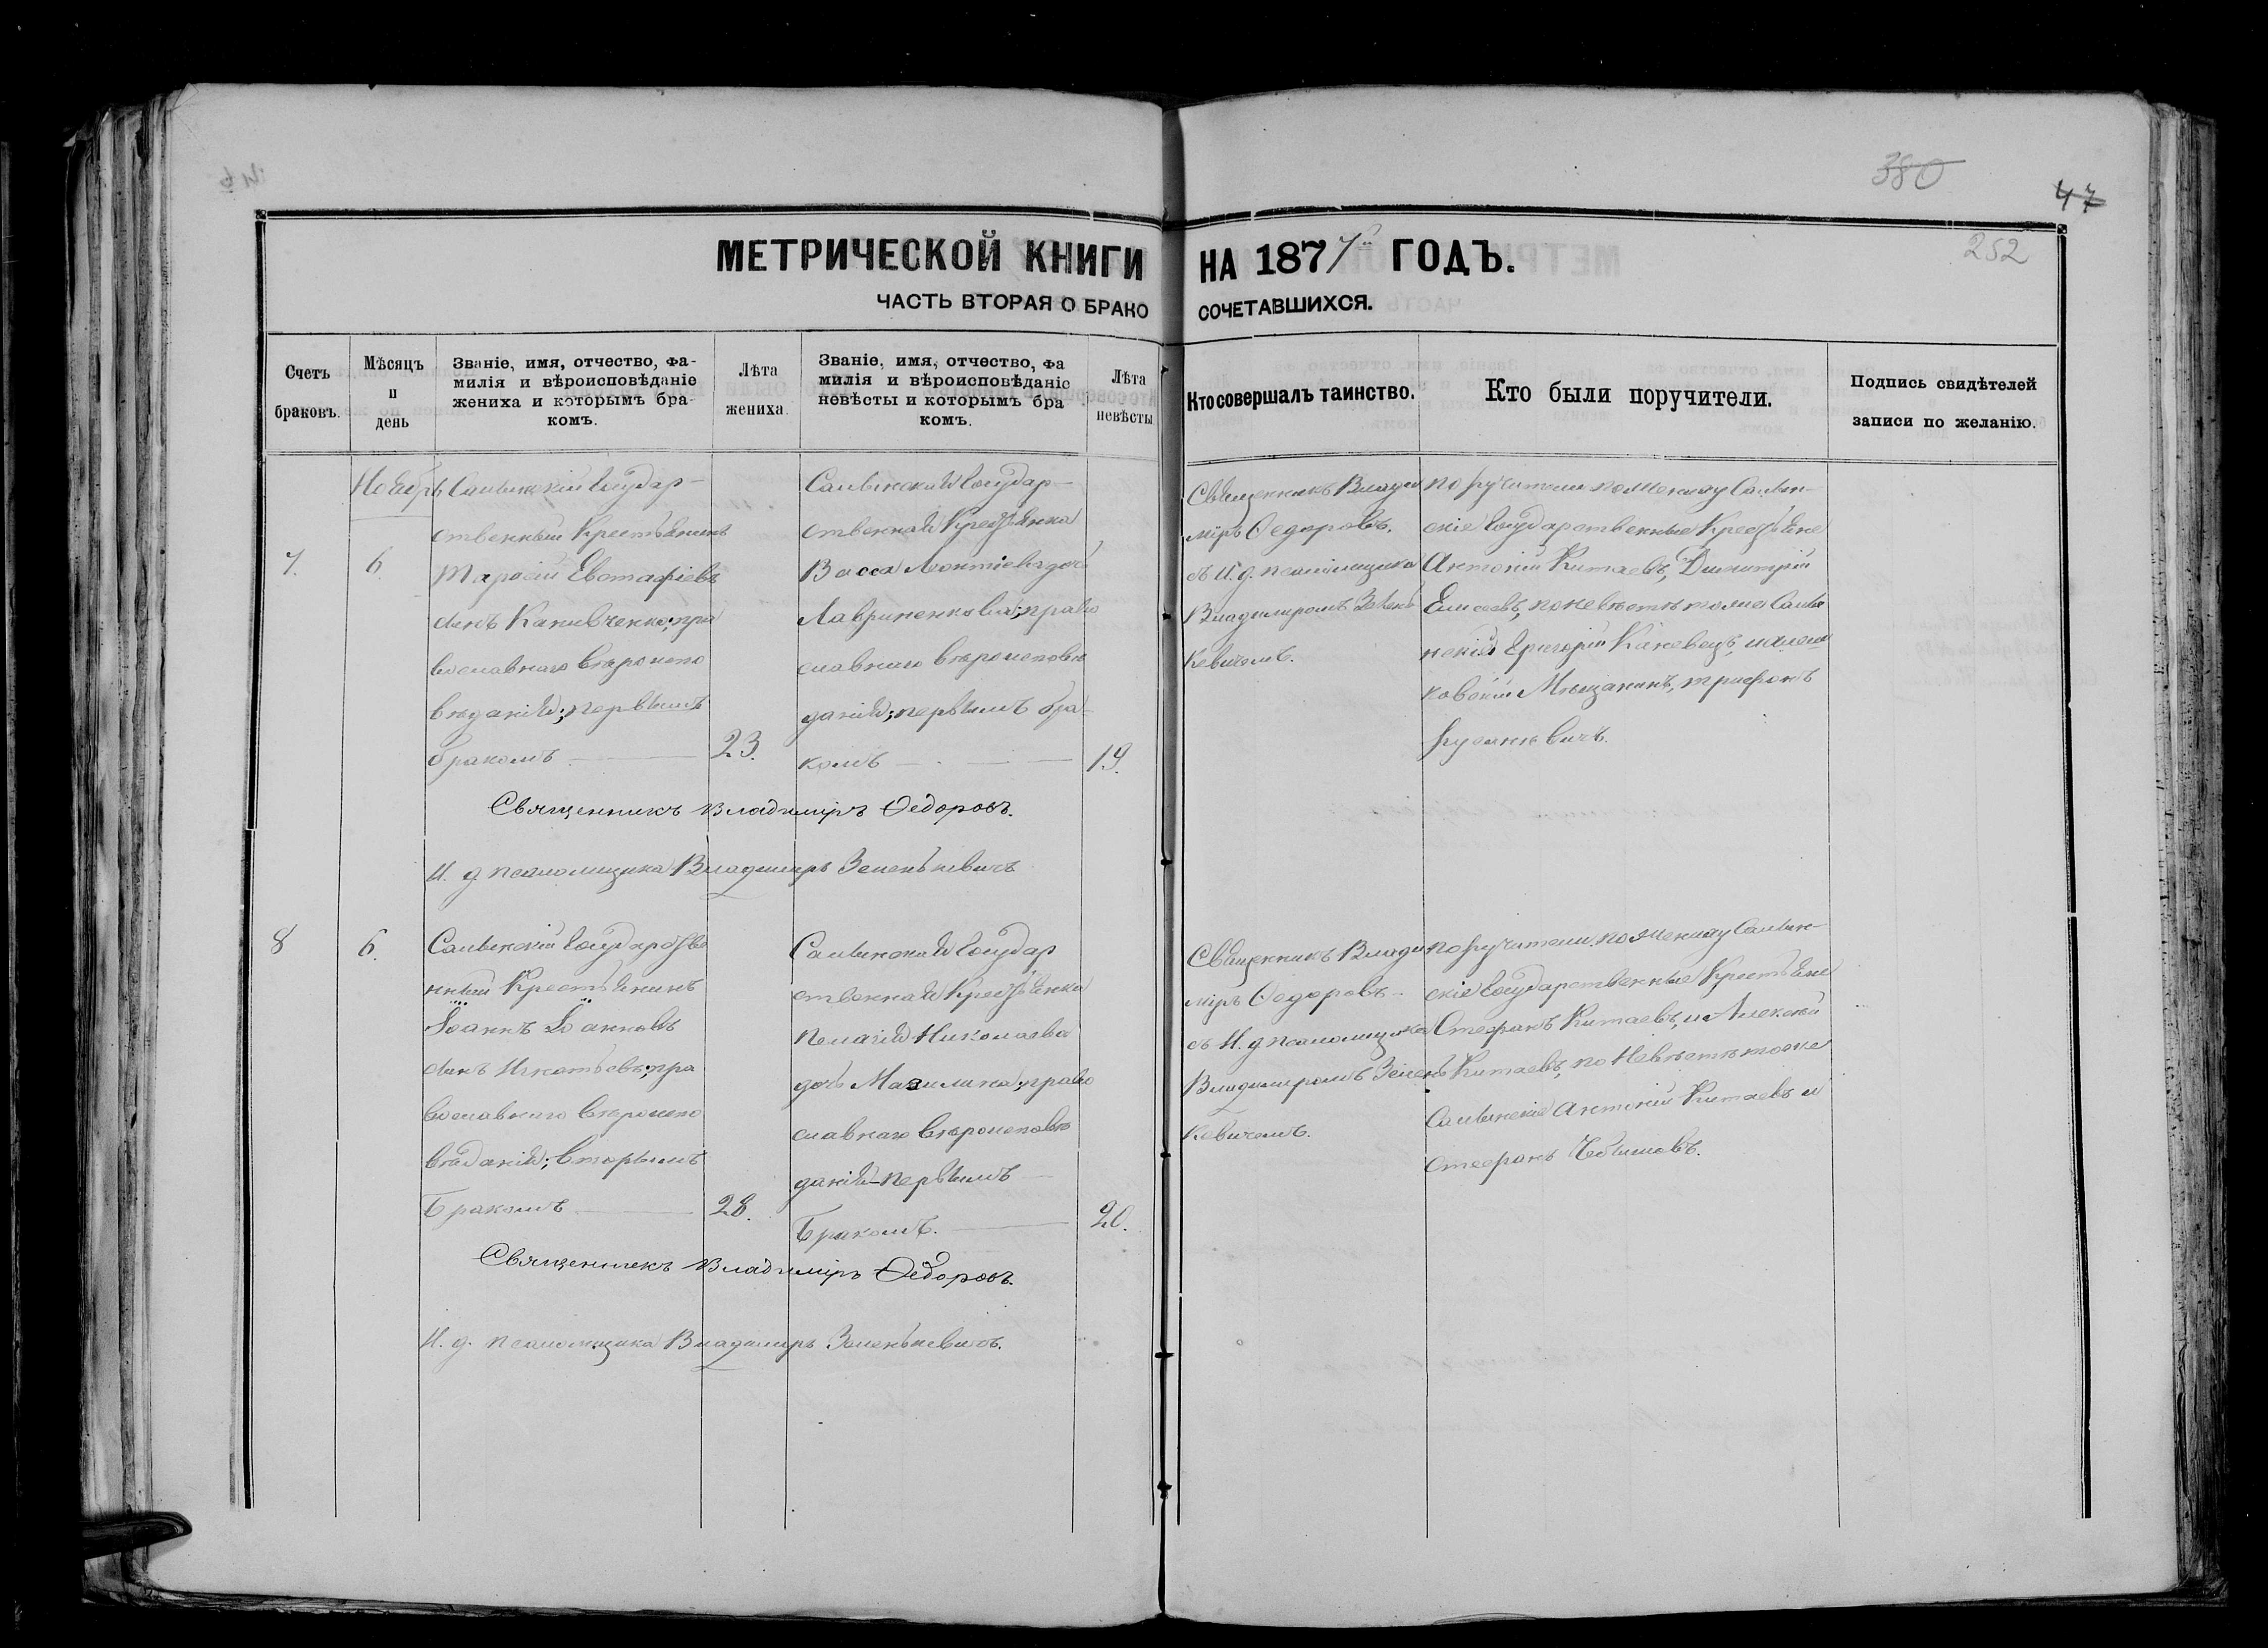 380
47
252
МЕТРИЧЕСКОЙ КНИГИ НА 1877й ГОДЪ.
ЧАСТЬ ВТОРАЯ О БРАКО СОЧЕТАВШИХСЯ.
Счетъ браковъ.
Мѣсяцъ и день
Званіе, имя, отчество, фа-
милія и вѣроисповѣданіе
жениха и которымъ бра-
комъ.
Лѣта жениха.
Званіе, имя, отчество, фа
милія и вѣроисповѣданіе
невѣсты и которымъ бра
комъ.
Лѣта невѣсты
Кто совершалъ таинство.
Кто были поручители.
Подпись свидѣтелей
записи по желанію.
Ноябрь
7.
6.
государ-
ственный Крестьянинъ
Тарасій Евстафіевъ
сынъ Канивченко; пра
вославнаго вѣроиспо
вѣданія; первымъ
бракомъ
23.
государ-
ственная Крестьянка
Васса Леонтіева дочь
Лавриненкова; право
славнаго вѣроисповѣ
данія; первымъ бра-
комъ
19.
Священникъ Влади
міръ Ѳедоровъ.
съ И. д. псаломщика
Владимиромъ Зелень
кевичемъ.
поручители по жениху
скіе государственные Крестьяне
Антоній Китаевъ, Димитрій
Елисеевъ, по невѣстѣ тоже
Григорій Каневецъ,
Мѣщанинъ, Трифонъ
Священникъ Владиміръ Ѳедоровъ.
И. д. псаломщика Владимиръ Зеленькевичъ
8
6.
государстве
нный Крестьянинъ
Іоаннъ Іоанновъ
сынъ Игнатьевъ; пра
вославнаго вѣроиспо
вѣданія; вторымъ
Бракомъ
28.
государ
ственная Крестьянка
Пелагія Николаева
дочь Мазилина; право
славнаго вѣроисповѣ
данія первымъ
Бракомъ.
20.
Священникъ Влади
міръ Ѳедоровъ
съ И. д псаломщика
Владимиромъ Зелень
кевичемъ.
поручители по жениху
скіе государственные Крестьяне
Стефанъ Китаевъ, и Алексѣй
Китаевъ, по Невѣстѣ тоже
Антоній Китаевъ и
Стефанъ
Священникъ Владиміръ Ѳедоровъ.
И. д. псаломщика Владимиръ Зеленькевичъ.